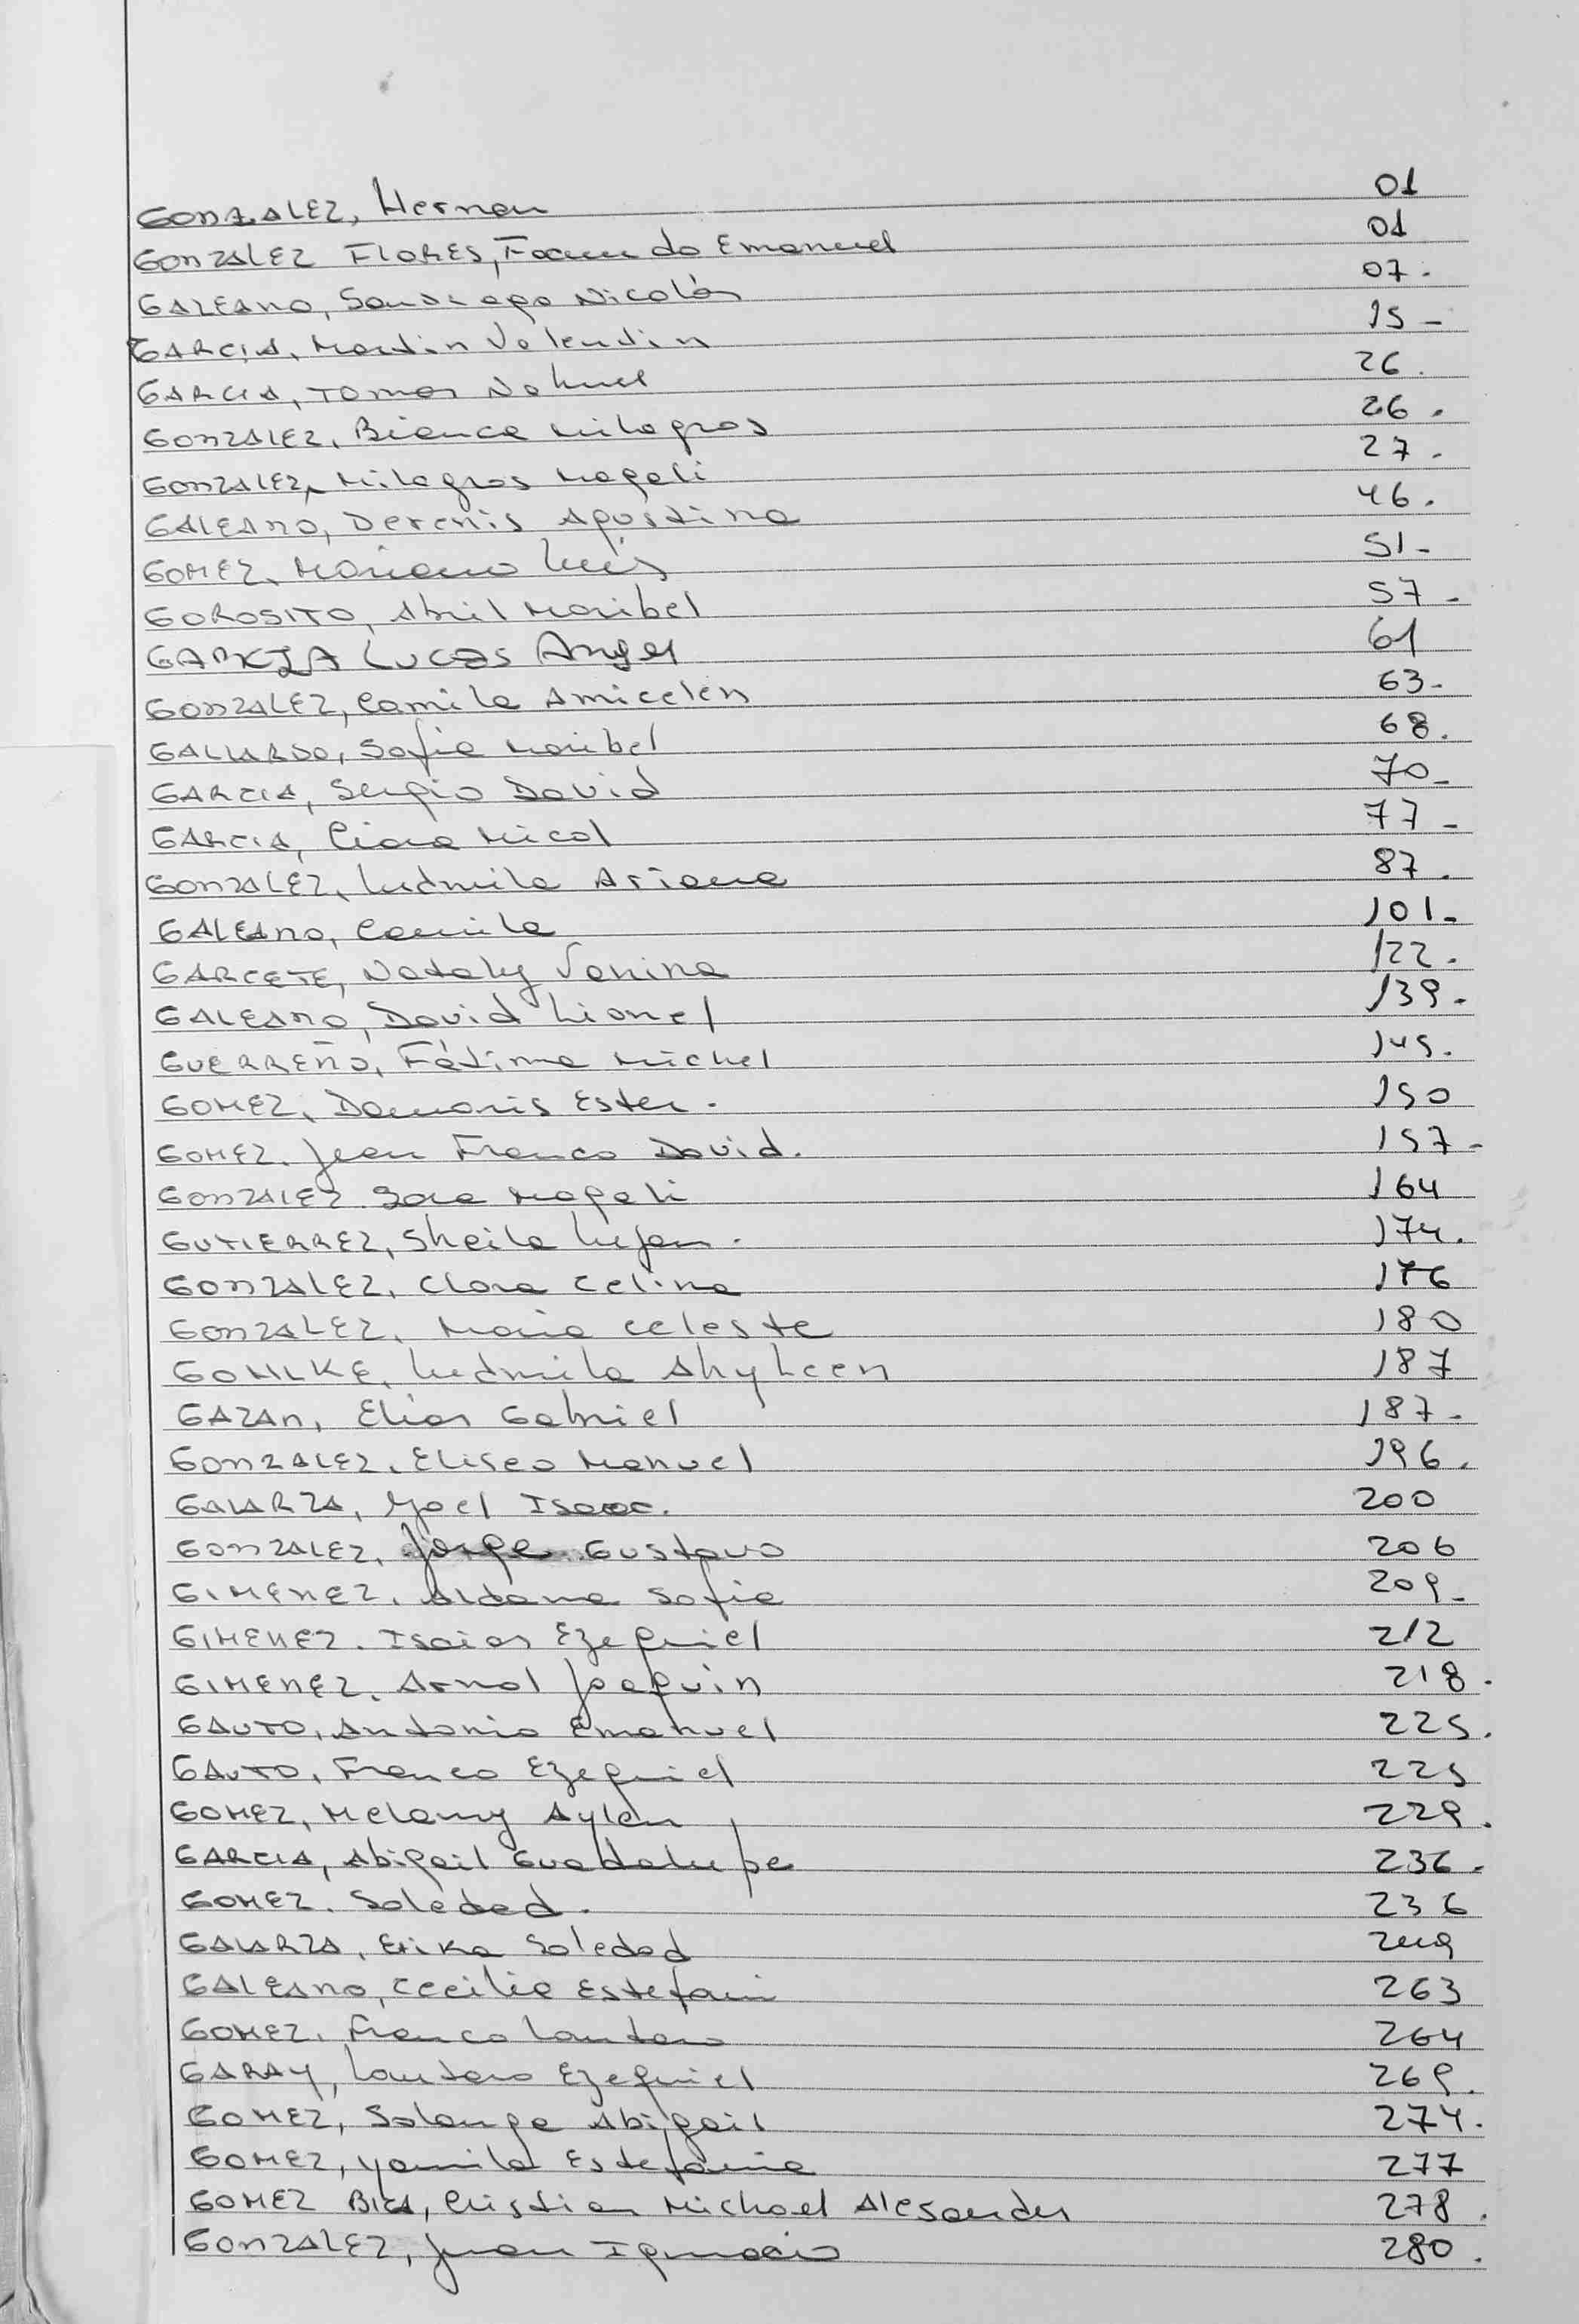 GONZALEZ, Hernan 01
GONZALEZ FLORES, Facundo Emanuel 01
GALEANO, Santiago Nicolás 07.
GARCIA, Martin Valentin 15-
GARCIA, Tomas Nahuel 26.
GONZALEZ, Bianca Milagros 26.
GONZALEZ, Milagros Magali 27.
GALEANO, Derenis Agostina 46.
GOMEZ, Mariano Luis 51-
GOROSITO, Abril Maribel 57-
GARCIA Lucas Angel 61
GONZALEZ, Camila Amicelen 63-
GALLARDO, Sofia Maribel 68.
GARCIA, Sergio David 70-
GARCIA, Ciara Nicol 77-
GONZALEZ, Ludmila Ariana 87.
GALEANO, Camila 101-
GARCETE, Nataly Yanina 122.
GALEANO, David Lionel 139.
GUERREÑO, Fátima Michel 145.
GOMEZ, Damaris Ester. 150
GOMEZ, Jean Franco David. 157-
GONZALEZ Sara Magali 164
GUTIERREZ, Sheila Lujan. 174.
GONZALEZ, Clara Celina 176
GONZALEZ, Maria Celeste 180
GOMLKE, Ludmila Shyleen 187
GAZAN, Elias Gabriel 187-
GONZALEZ, Eliseo Manuel 196.
GALARZA, Yoel Isaac. 200
GONZALEZ, Jorge Gustavo 206
GIMENEZ, Aldana Sofia 209-
GIMENEZ. Isaias Ezequiel 212
GIMENEZ, Arnol Joaquin 218.
GAUTO, Antonio Emanuel 225.
GAUTO, Franco Ezequiel 225
GOMEZ, Melany Aylen 229.
GARCIA, Abigail Guadalupe 236.
GOMEZ. Soledad. 236
GALARZA, Erika Soledad 249
GALEANO, Cecilia Estefani 263
GOMEZ, Franco Lautaro 264
GARAY, Lautaro Ezequiel 269.
GOMEZ, Solange Abigail 274.
GOMEZ, Yamila Estefania 277
GOMEZ Cristian Michael Alesander 278.
GONZALEZ, Juan Ignacio 280.